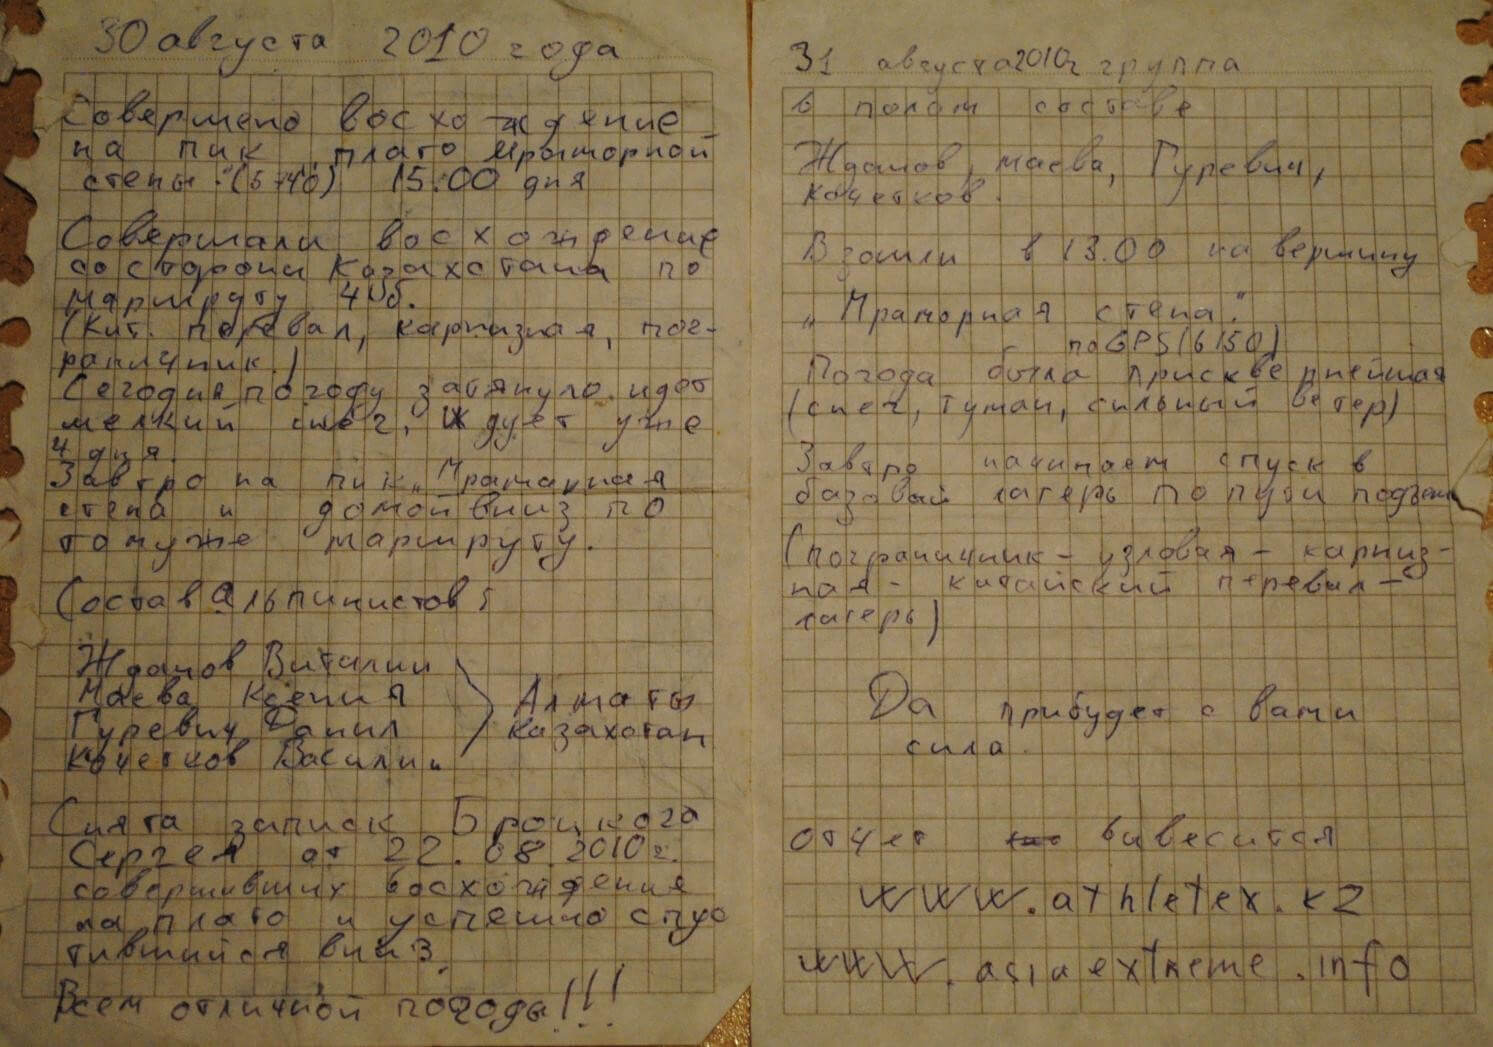 30 августа 2010 года
Совершено восхождение
на пик плато Мраморной
стены. (5740) 15.00 дня
Совершали восхождение
со стороны Казахстана по
маршруту 4Б.
(Кит. перевал, карнизная, пог-
раничник.)
Сегодня погоду затянуло. идет
мелкий снег, дует уже
4 дня.
Завтро на пик „Мраманная
стена и домой вниз по
томуже маршруту.
Состав Альпинистов:
Жданов Виталий
Маева Ксения
Алматы
Гуревич Данил
Казахстан
Кочетков Василий.
Снята записк Броцкого
Сергея от 22.08.2010г.
совершивших восхождения
на плато и успешно спус
тившийся вниз.
Всем отличной погоды!!!
31 августа 2010г группа
в полом составе
Жданов, Маева, Гуревич,
Кочетков.
Взошли в 13.00 на вершину
„Мраморная стена."
по GPS (6150)
Погода была присквернейшая
(снег, туман, сильный ветер)
Завтро начинаем спуск в
базовый лагерь по пути подъем
(пограничник - узловая - карниз-
ная - китайский перевал -
лагерь)
Да прибудет с вами
сила.
отчет вивесится
www.athletex.kz
www.asiaextreme.info